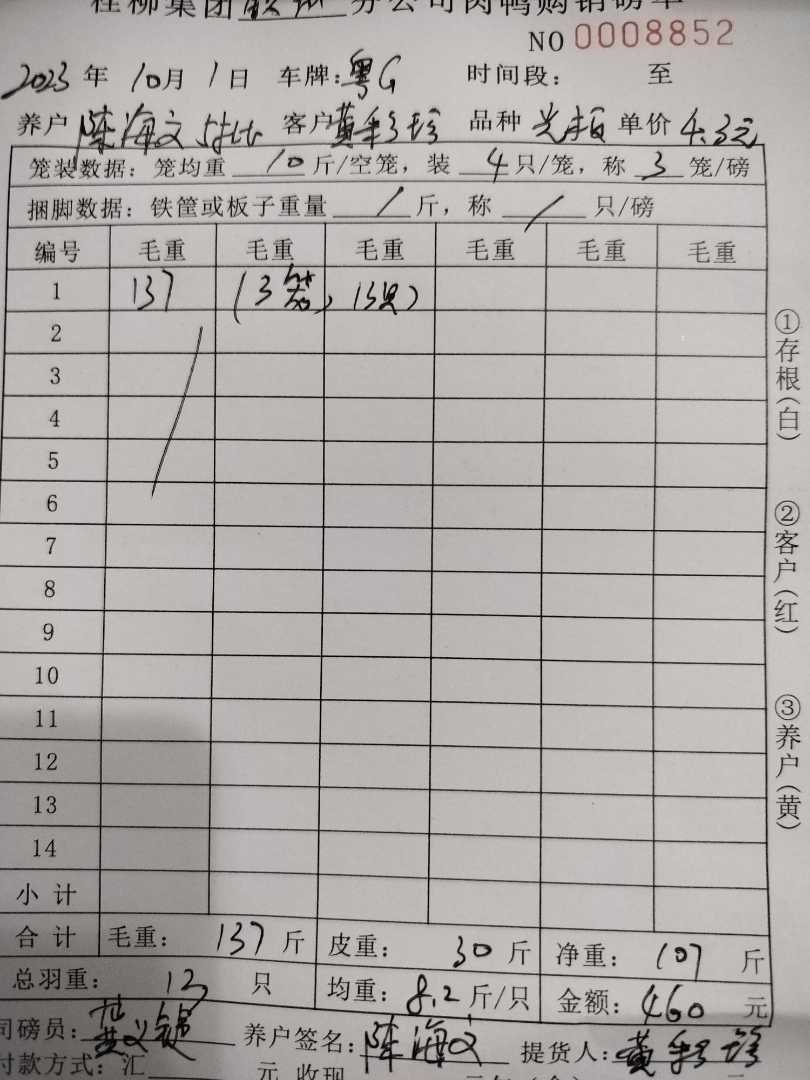 桂柳集团 分公司肉鸭购销磅单
NO 0008852
2023 年 10月 1日 车牌:粤G 时间段: 至
养户 陈海文 客户 黄彩珍 品种 单价 4.3元
笼装数据: 笼均重 10 斤/空笼, 装 4 只/笼, 称 3 笼/磅
捆脚数据: 铁筐或板子重量 / 斤, 称 / 只/磅
编号 毛重 毛重 毛重 毛重 毛重 毛重
1 137 (3笼, 13只)
2
3
4
5
6
7
8
9
10
11
12
13
14
小 计
合 计 毛重: 137 斤 皮重: 30 斤 净重: 107 斤
总羽重: 13 只 均重: 8.2 斤/只 金额: 460 元
司磅员: 养户签名: 陈海文 提货人: 黄彩珍
付款方式: 汇 元 收现
①存根(白)
②客户(红)
③养户(黄)